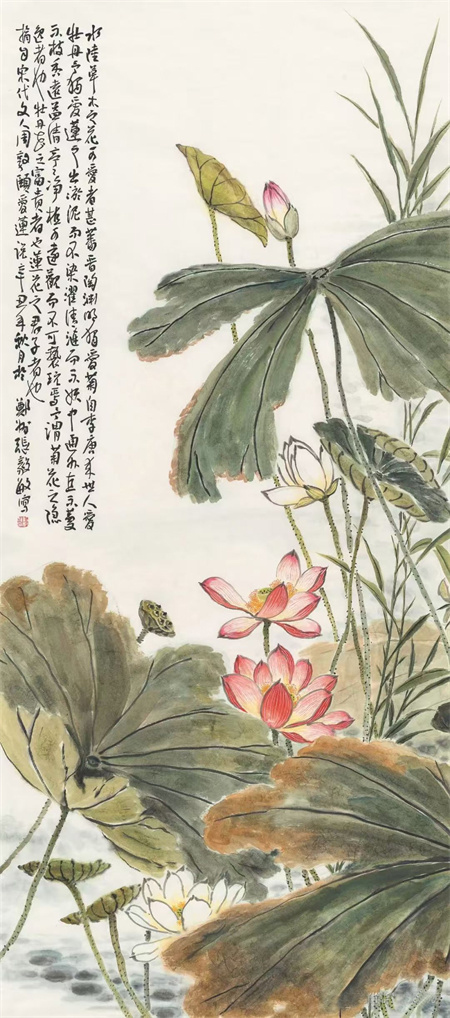 水陸草木之花可愛者甚蕃晉陶淵明獨愛菊自李唐來世人愛
牡丹予獨愛蓮之出淤泥而不染濯清漣而不妖中通外直不蔓
不枝香遠益清亭々淨植可遠觀而不可褻玩焉予謂菊花之隱
逸者也牡丹花之富貴者也蓮花之君子者也
摘自宋代文人周敦頤愛蓮說辛丑年秋月於鄭州張毅敏寫